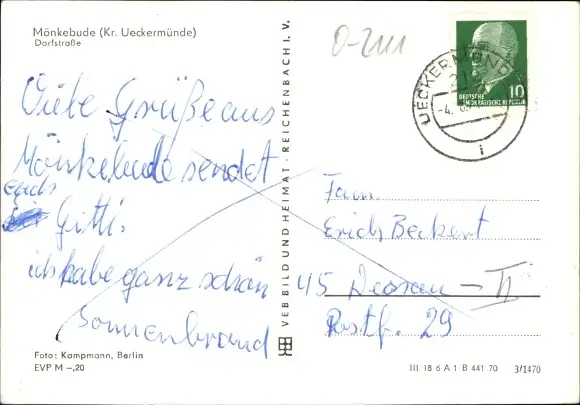 Mönkebude (Kr. Ueckermünde)
Dorfstraße
0-2111
Viele Grüße aus
Mönkebude sendet
euch
Gitti.
ich habe ganz schön
Sonnenbrand
Foto: Kampmann, Berlin
EVP M -,20
VEB BILD UND HEIMAT · REICHENBACH I. V.
UECKERMÜNDE
DEUTSCHE
DEMOKRATISCHE REPUBLIK
10
Fam.
Erich Beckert
45 Dessau - II
Postf. 29
III 18 6 A 1 B 441 70 3/1470